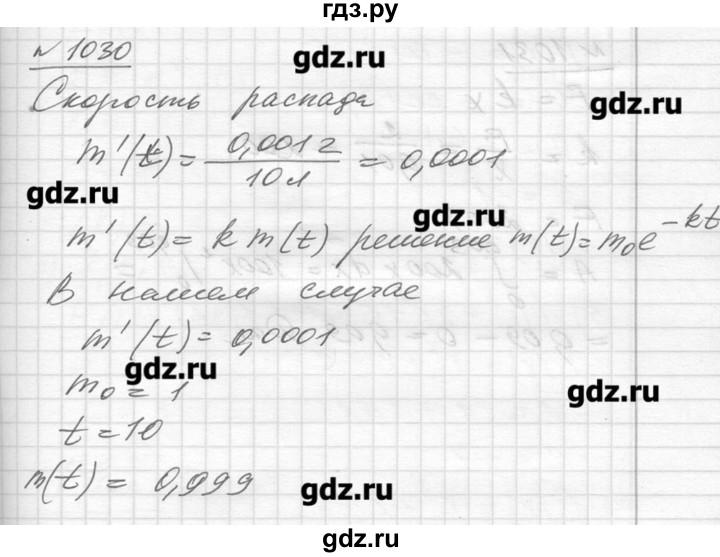 гдз.ру
№1030
gdz.ru
Скорость распада
gdz.ru
m'(t) = 0,001 г / 10 л = 0,0001
gdz.ru
gdz.ru
m'(t) = k m(t) решение m(t) = m₀e^(-kt)
В нашем случае
m'(t) = 0,0001
gdz.ru
m₀ = 1
gdz.ru
t = 10
m(t) = 0,999
gdz.ru
gdz.ru